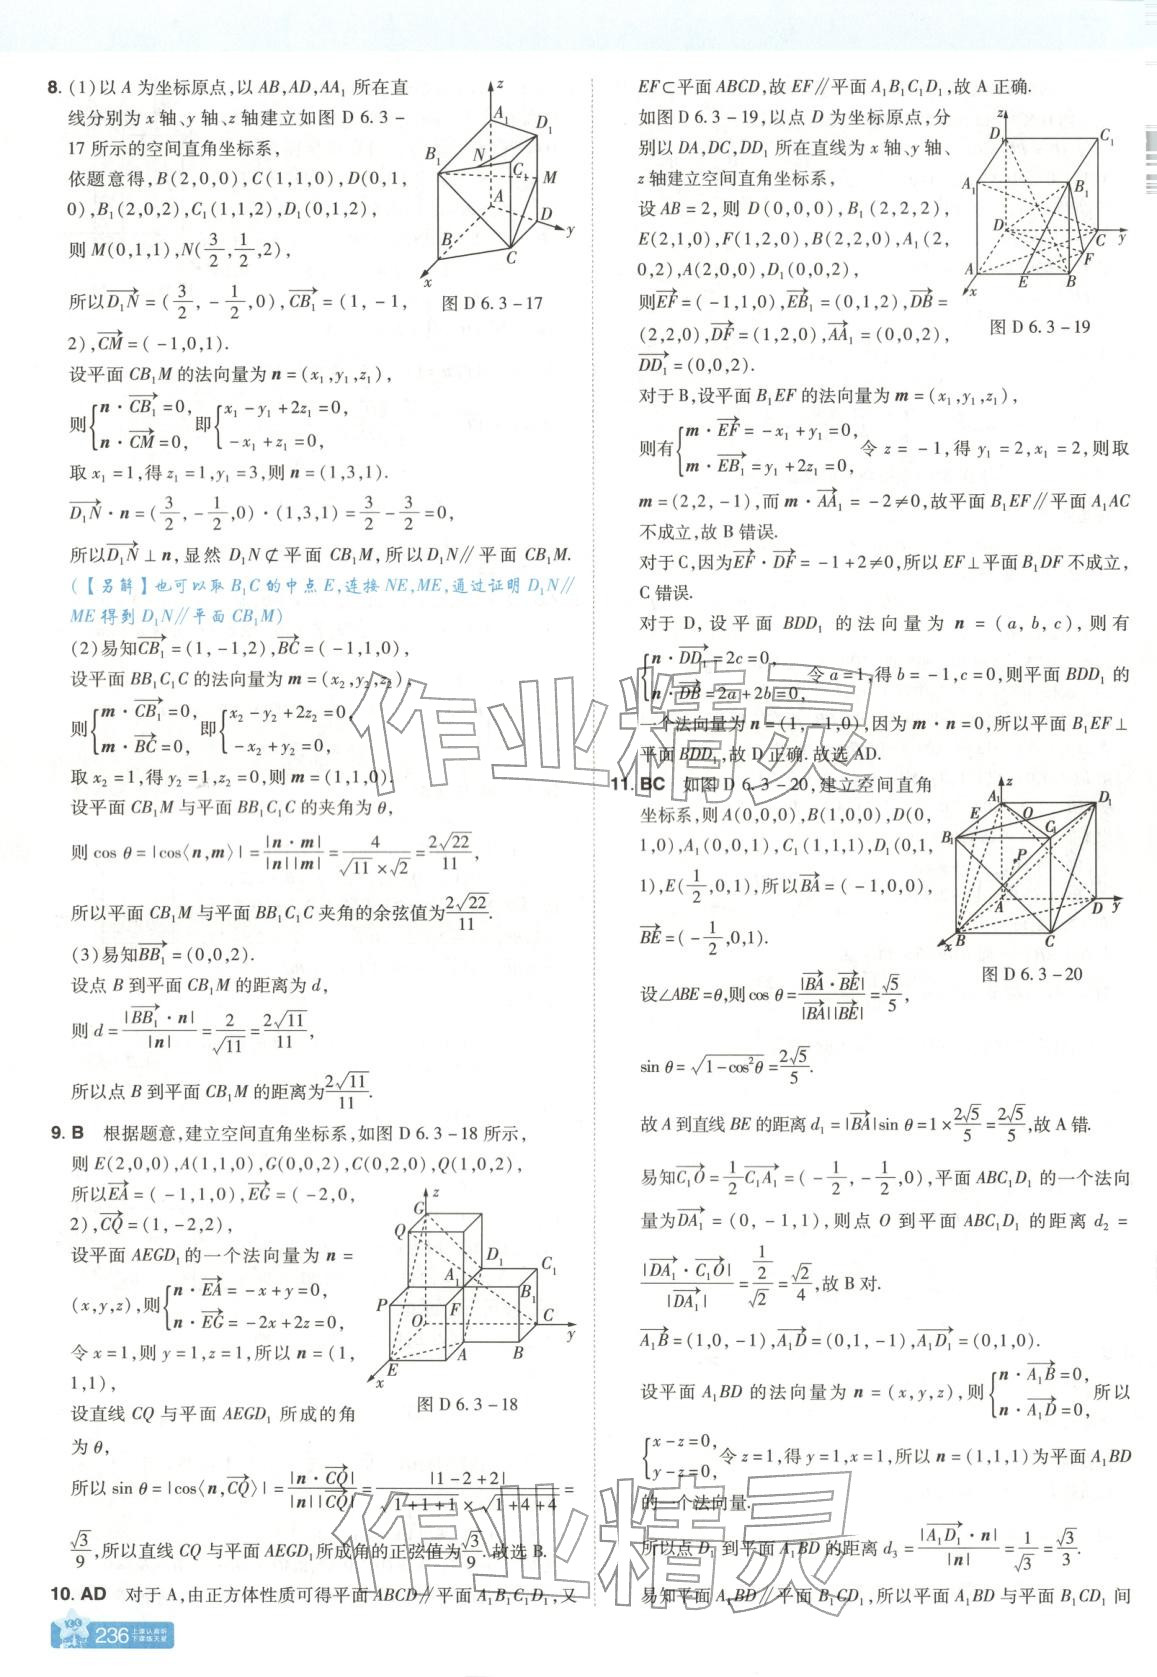 8. (1)以 A 为坐标原点,以 AB,AD,AA₁ 所在直
线分别为 x 轴、y 轴、z 轴建立如图 D 6.3－
17 所示的空间直角坐标系,
依题意得,B(2,0,0),C(1,1,0),D(0,1,
0),B₁(2,0,2),C₁(1,1,2),D₁(0,1,2),
则 M(0,1,1),N(3/2,1/2,2),
所以D₁N→=(3/2,-1/2,0),CB₁→=(1,-1,
2),CM→=(-1,0,1).
图 D 6.3－17
设平面 CB₁M 的法向量为 n=(x₁,y₁,z₁),
则{n·CB₁→=0, n·CM→=0, 即{x₁-y₁+2z₁=0, -x₁+z₁=0,
取 x₁=1,得 z₁=1,y₁=3,则 n=(1,3,1).
D₁N→·n=(3/2,-1/2,0)·(1,3,1)=3/2-3/2=0,
所以D₁N→⊥n,显然 D₁N⊄平面 CB₁M,所以D₁N∥平面 CB₁M.
(【另解】也可以取 B₁C 的中点 E,连接 NE,ME,通过证明 D₁N∥
ME 得到 D₁N∥平面 CB₁M)
(2)易知CB₁→=(1,-1,2),BC→=(-1,1,0),
设平面 BB₁C₁C 的法向量为 m=(x₂,y₂,z₂),
则{m·CB₁→=0, m·BC→=0, 即{x₂-y₂+2z₂=0, -x₂+y₂=0,
取 x₂=1,得 y₂=1,z₂=0,则 m=(1,1,0).
设平面 CB₁M 与平面 BB₁C₁C 的夹角为 θ,
则 cos θ=|cos⟨n,m⟩|=|n·m|/|n||m|=4/(√11×√2)=2√22/11,
所以平面 CB₁M 与平面 BB₁C₁C 夹角的余弦值为2√22/11.
(3)易知BB₁→=(0,0,2).
设点 B 到平面 CB₁M 的距离为 d,
则 d=|BB₁→·n|/|n|=2/√11=2√11/11,
所以点 B 到平面 CB₁M 的距离为2√11/11.
9. B 根据题意,建立空间直角坐标系,如图 D 6.3－18 所示,
则 E(2,0,0),A(1,1,0),G(0,0,2),C(0,2,0),Q(1,0,2),
所以EA→=(-1,1,0),EG→=(-2,0,
2),CQ→=(1,-2,2),
设平面 AEGD₁ 的一个法向量为 n=
(x,y,z),则{n·EA→=-x+y=0, n·EG→=-2x+2z=0,
令 x=1,则 y=1,z=1,所以 n=(1,
1,1),
图 D 6.3－18
设直线 CQ 与平面 AEGD₁ 所成的角
为 θ,
所以 sin θ=|cos⟨n,CQ→⟩|=|n·CQ→|/|n||CQ→|=|1-2+2|/(√(1+1+1)×√(1+4+4))=
√3/9,所以直线 CQ 与平面 AEGD₁所成角的正弦值为√3/9.故选 B.
10. AD 对于 A,由正方体性质可得平面 ABCD∥平面 A₁B₁C₁D₁,又
236 上课认真听
下课练天星
EF⊂平面 ABCD,故 EF∥平面 A₁B₁C₁D₁,故 A 正确.
如图 D 6.3－19,以点 D 为坐标原点,分
别以 DA,DC,DD₁ 所在直线为 x 轴、y 轴、
z 轴建立空间直角坐标系,
设 AB=2,则 D(0,0,0),B₁(2,2,2),
E(2,1,0),F(1,2,0),B(2,2,0),A₁(2,
0,2),A(2,0,0),D₁(0,0,2),
则EF→=(-1,1,0),EB₁→=(0,1,2),DB→=
(2,2,0),DF→=(1,2,0),AA₁→=(0,0,2),
DD₁→=(0,0,2).
图 D 6.3－19
对于 B,设平面 B₁EF 的法向量为 m=(x₁,y₁,z₁),
则有{m·EF→=-x₁+y₁=0, m·EB₁→=y₁+2z₁=0, 令 z=-1,得 y₁=2,x₁=2,则取
m=(2,2,-1),而 m·AA₁→=-2≠0,故平面 B₁EF∥平面 A₁AC
不成立,故 B 错误.
对于 C,因为EF→·DF→=-1+2≠0,所以 EF⊥平面 B₁DF 不成立,
C 错误.
对于 D,设平面 BDD₁ 的法向量为 n=(a,b,c),则有
{n·DD₁→=2c=0, n·DB→=2a+2b=0, 令 a=1,得 b=-1,c=0,则平面 BDD₁ 的
一个法向量为 n=(1,-1,0),因为 m·n=0,所以平面 B₁EF⊥
平面 BDD₁,故 D 正确.故选 AD.
11. BC 如图 D 6.3－20,建立空间直角
坐标系,则 A(0,0,0),B(1,0,0),D(0,
1,0),A₁(0,0,1),C₁(1,1,1),D₁(0,1,
1),E(1/2,0,1),所以BA→=(-1,0,0),
BE→=(-1/2,0,1).
图 D 6.3－20
设∠ABE=θ,则 cos θ=|BA→·BE→|/|BA→||BE→|=√5/5,
sin θ=√(1-cos²θ)=2√5/5.
故 A 到直线 BE 的距离 d₁=|BA→|sin θ=1×2√5/5=2√5/5,故 A 错.
易知C₁O→=1/2C₁A₁→=(-1/2,-1/2,0),平面 ABC₁D₁ 的一个法向
量为DA₁→=(0,-1,1),则点 O 到平面 ABC₁D₁ 的距离 d₂=
|DA₁→·C₁O→|/|DA₁→|=(1/2)/√2=√2/4,故 B 对.
A₁B→=(1,0,-1),A₁D→=(0,1,-1),A₁D₁→=(0,1,0).
设平面 A₁BD 的法向量为 n=(x,y,z),则{n·A₁B→=0, n·A₁D→=0, 所以
{x-z=0, y-z=0, 令 z=1,得 y=1,x=1,所以 n=(1,1,1)为平面 A₁BD
的一个法向量.
所以点 D₁ 到平面 A₁BD 的距离 d₃=|A₁D₁→·n|/|n|=1/√3=√3/3.
易知平面 A₁BD∥平面 B₁CD₁,所以平面 A₁BD 与平面 B₁CD₁ 间
作业精灵
作业精灵